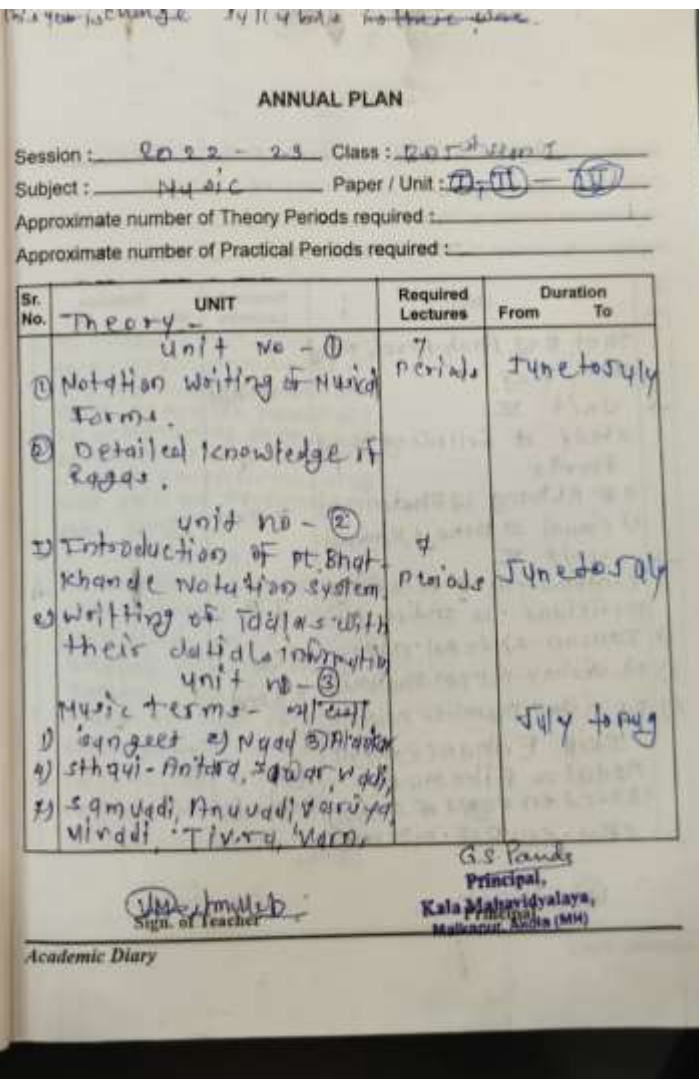 ANNUAL PLAN
Session : 2022 - 23 Class : Sem I
Subject : Music Paper / Unit : I, II - IV
Approximate number of Theory Periods required :
Approximate number of Practical Periods required :
Sr. No. UNIT Required Lectures Duration From To
Theory -
Unit No - ① 7 Periods June to July
① Notation Writing of Musical
Forms.
② Detailed Knowledge of
Ragas.
Unit no - ②
I) Introduction of Pt. Bhat- 7
Khande Notation System. Periods June to July
2) Writting of Taalas with
their
Unit no - ③
Music terms - व्याख्या July to Aug
1) Sangeet 2) Naad 3) Alankar
4) Sthayi - Antara, Swar, Vadi,
7) Samvadi, Anuvadi
Vivadi, Tivra, Varn,
Sign. of Teacher
G.S. Pande
Principal,
Kala Mahavidyalaya,
Principal
Malkapur, Akola (MH)
Academic Diary